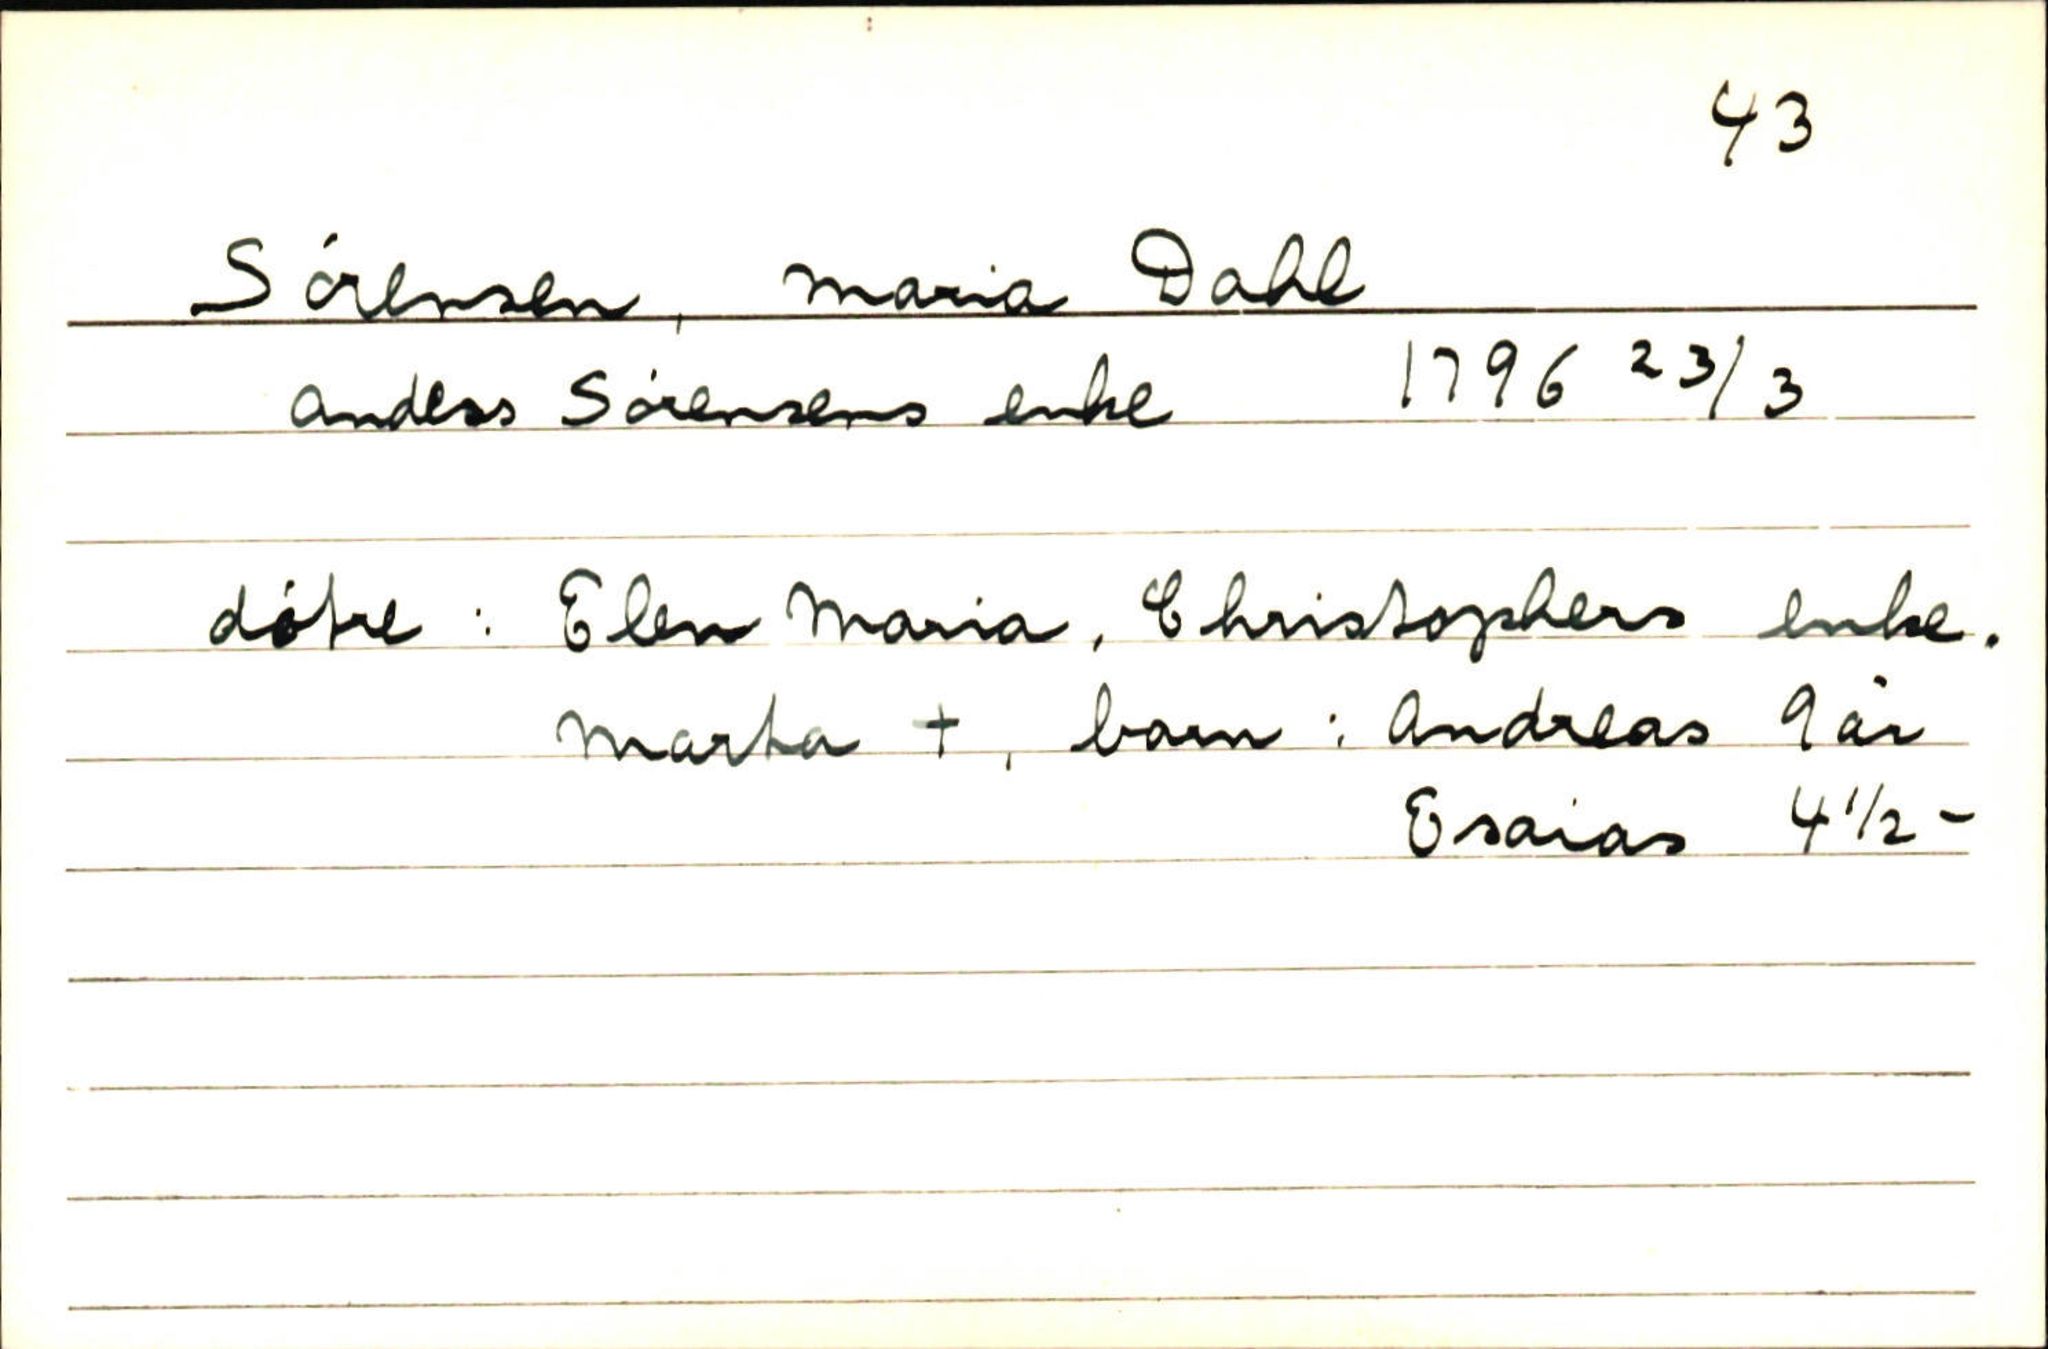 43
Sörensen, Maria Dahl
Anders Sörensens enke 1796 23/3
dötre: Elen Maria, Christophers enke.
Marta +, barn: Andreas 9 år
Esaias 4 1/2 -